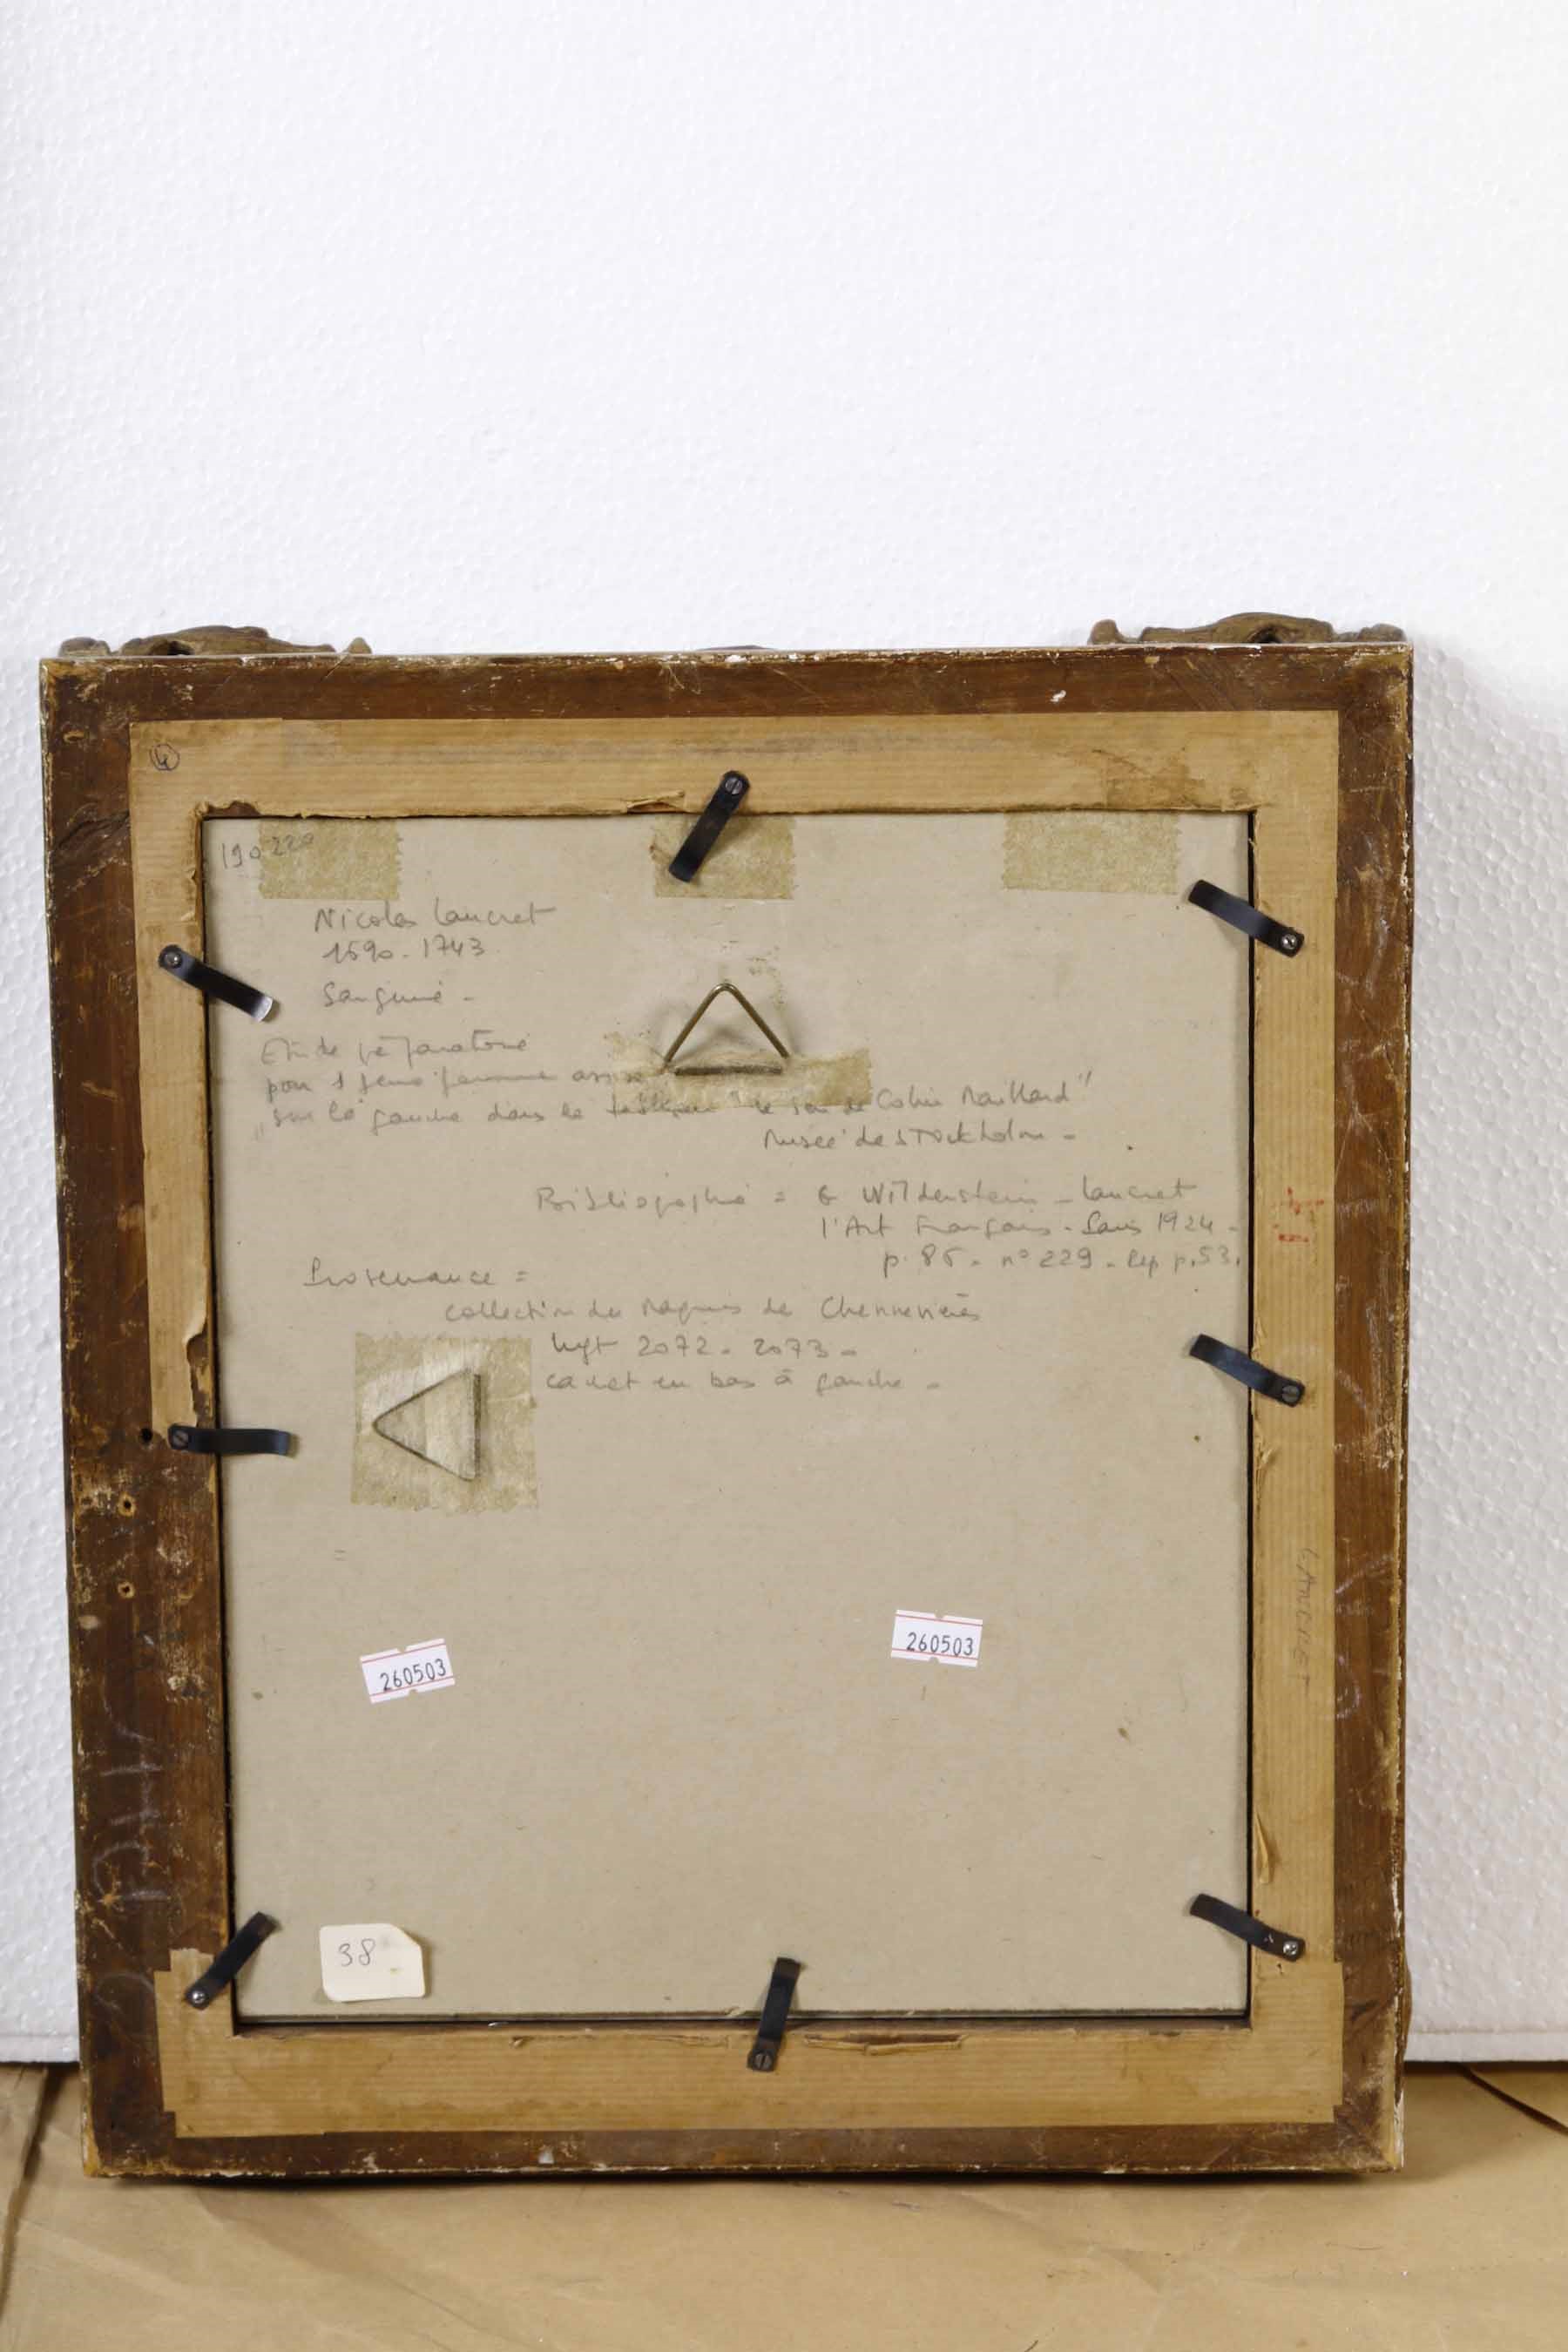 4
190220
Nicolas Lancret
1690-1743
Sanguine -
Etude préparatoire
pour 1 jeune femme assise
sur la gauche dans le tableau "le jeu de Colin Maillard"
Musée de Stockholm -
Bibliographie = G Wildenstein - Lancret
l'Art Français - Paris 1924 -
p. 85 - n° 229 - Rep p. 53.
Provenance =
collection du Marquis de Chennevières
Lugt 2072 - 2073 -
cachet en bas à gauche -
LANCRET
260503
260503
38